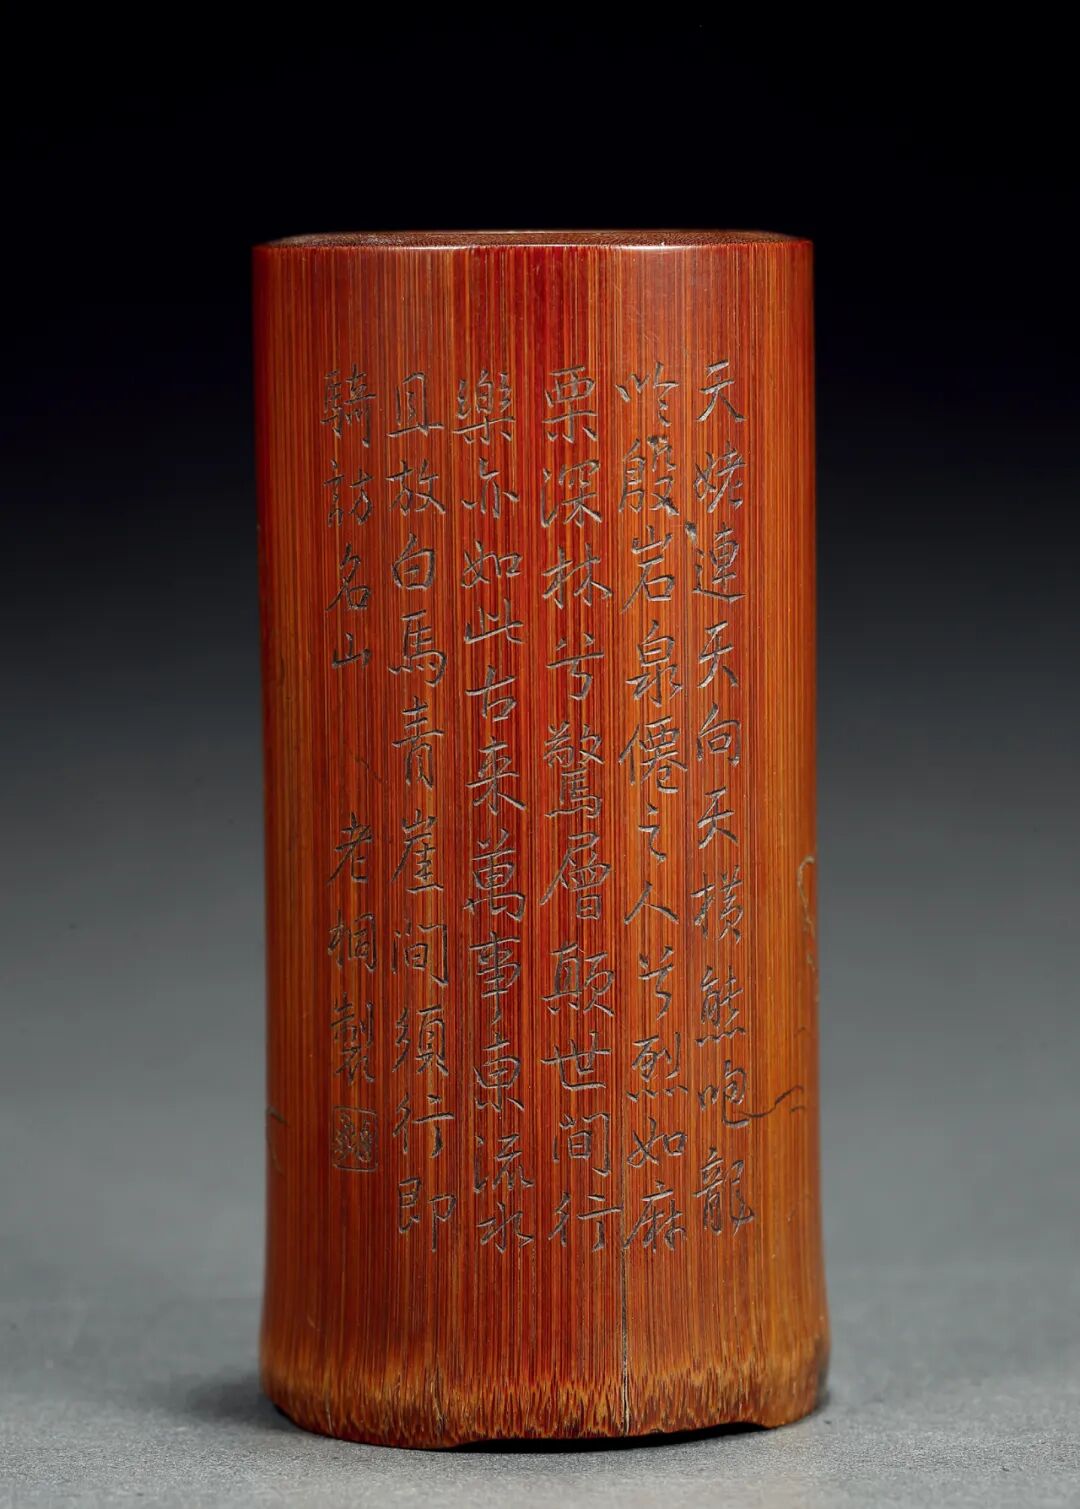 天姥連天向天橫熊咆龍
吟殷岩泉僊之人兮烈如麻
栗深林兮驚層顛世間行
樂亦如此古来萬事東流水
且放白馬青崖間須行即
騎訪名山 老桐製